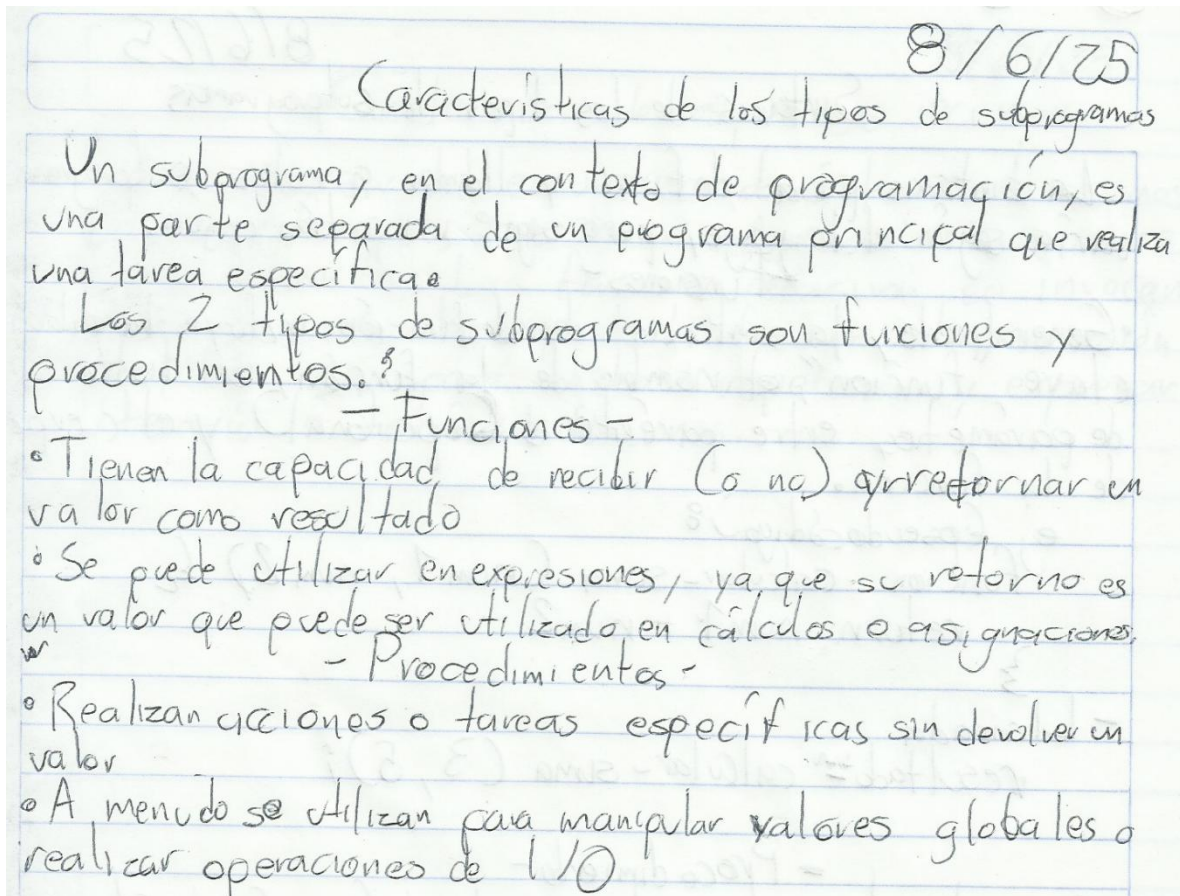 8/6/25
Características de los tipos de subprogramas
Un subprograma, en el contexto de programación, es
una parte separada de un programa principal que realiza
una tarea específica.
Los 2 tipos de subprogramas son funciones y
procedimientos.
- Funciones -
• Tienen la capacidad de recibir (o no) retornar un
valor como resultado
• Se puede utilizar en expresiones, ya que su retorno es
un valor que puede ser utilizado en cálculos o asignaciones.
- Procedimientos -
• Realizan acciones o tareas específicas sin devolver un
valor
• A menudo se utilizan para manipular valores globales o
realizar operaciones de I/O